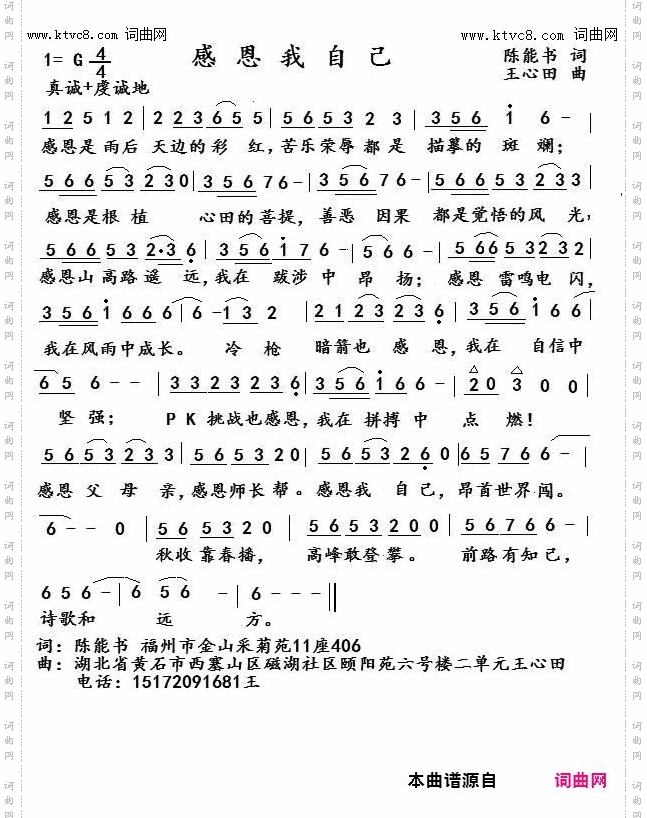 www.ktvc8.com 词曲网 www.ktvc8.com 词曲网
1= G 4/4 感恩我自己 陈能书 词
真诚+虔诚地 王心田 曲
1 2 5 1 2 | 2 2 3 6 5 5 | 5 6 5 3 2 3 | 3 5 6 1 6 - |
感恩是雨后 天边的彩 红,苦乐荣辱 都 是 描摹的 斑 斓;
5 6 6 5 3 2 3 0 | 3 5 6 7 6 - | 3 5 6 7 6 - | 5 6 6 5 3 2 3 3 |
感恩是根 植 心田的菩提,善恶 因果 都是觉悟的风 光,
5 6 6 5 3 2·3 6 | 3 5 6 1 7 6 - | 5 6 6 - | 5 6 6 5 3 2 3 2 |
感恩山高路遥 远,我在 跋涉 中 昂 扬; 感恩 雷鸣电 闪,
3 5 6 1 6 6 6 | 6 - 1 3 2 | 2 1 2 3 2 2 3 6 | 3 5 6 1 6 6 |
我在风雨中成长。 冷 枪 暗箭也 感 恩,我在 自信中
6 5 6 - - | 3 3 2 3 2 3 6 | 3 5 6 1 6 6 - | 2 0 3 0 0 |
坚 强; P K 挑战也感恩,我在 拼搏 中 点 燃!
5 6 5 3 2 3 3 | 5 6 5 3 2 0 | 5 6 5 3 2 6 0 | 6 5 7 6 6 - |
感恩 父 母 亲,感恩师长 帮。感恩我 自 己,昂首世界 闯。
6 - - 0 | 5 6 5 3 2 0 | 5 6 5 3 2 0 0 | 5 6 7 6 6 - |
秋收 靠春播, 高峰敢登 攀。 前路 有知己,
6 5 6 - - | 6 5 6 - | 6 - - - ||
诗歌和 远 方。
词: 陈能书 福州市金山采菊苑11座406
曲: 湖北省黄石市西塞山区磁湖社区颐阳苑六号楼二单元王心田
电话: 15172091681王
本曲谱源自 词曲网